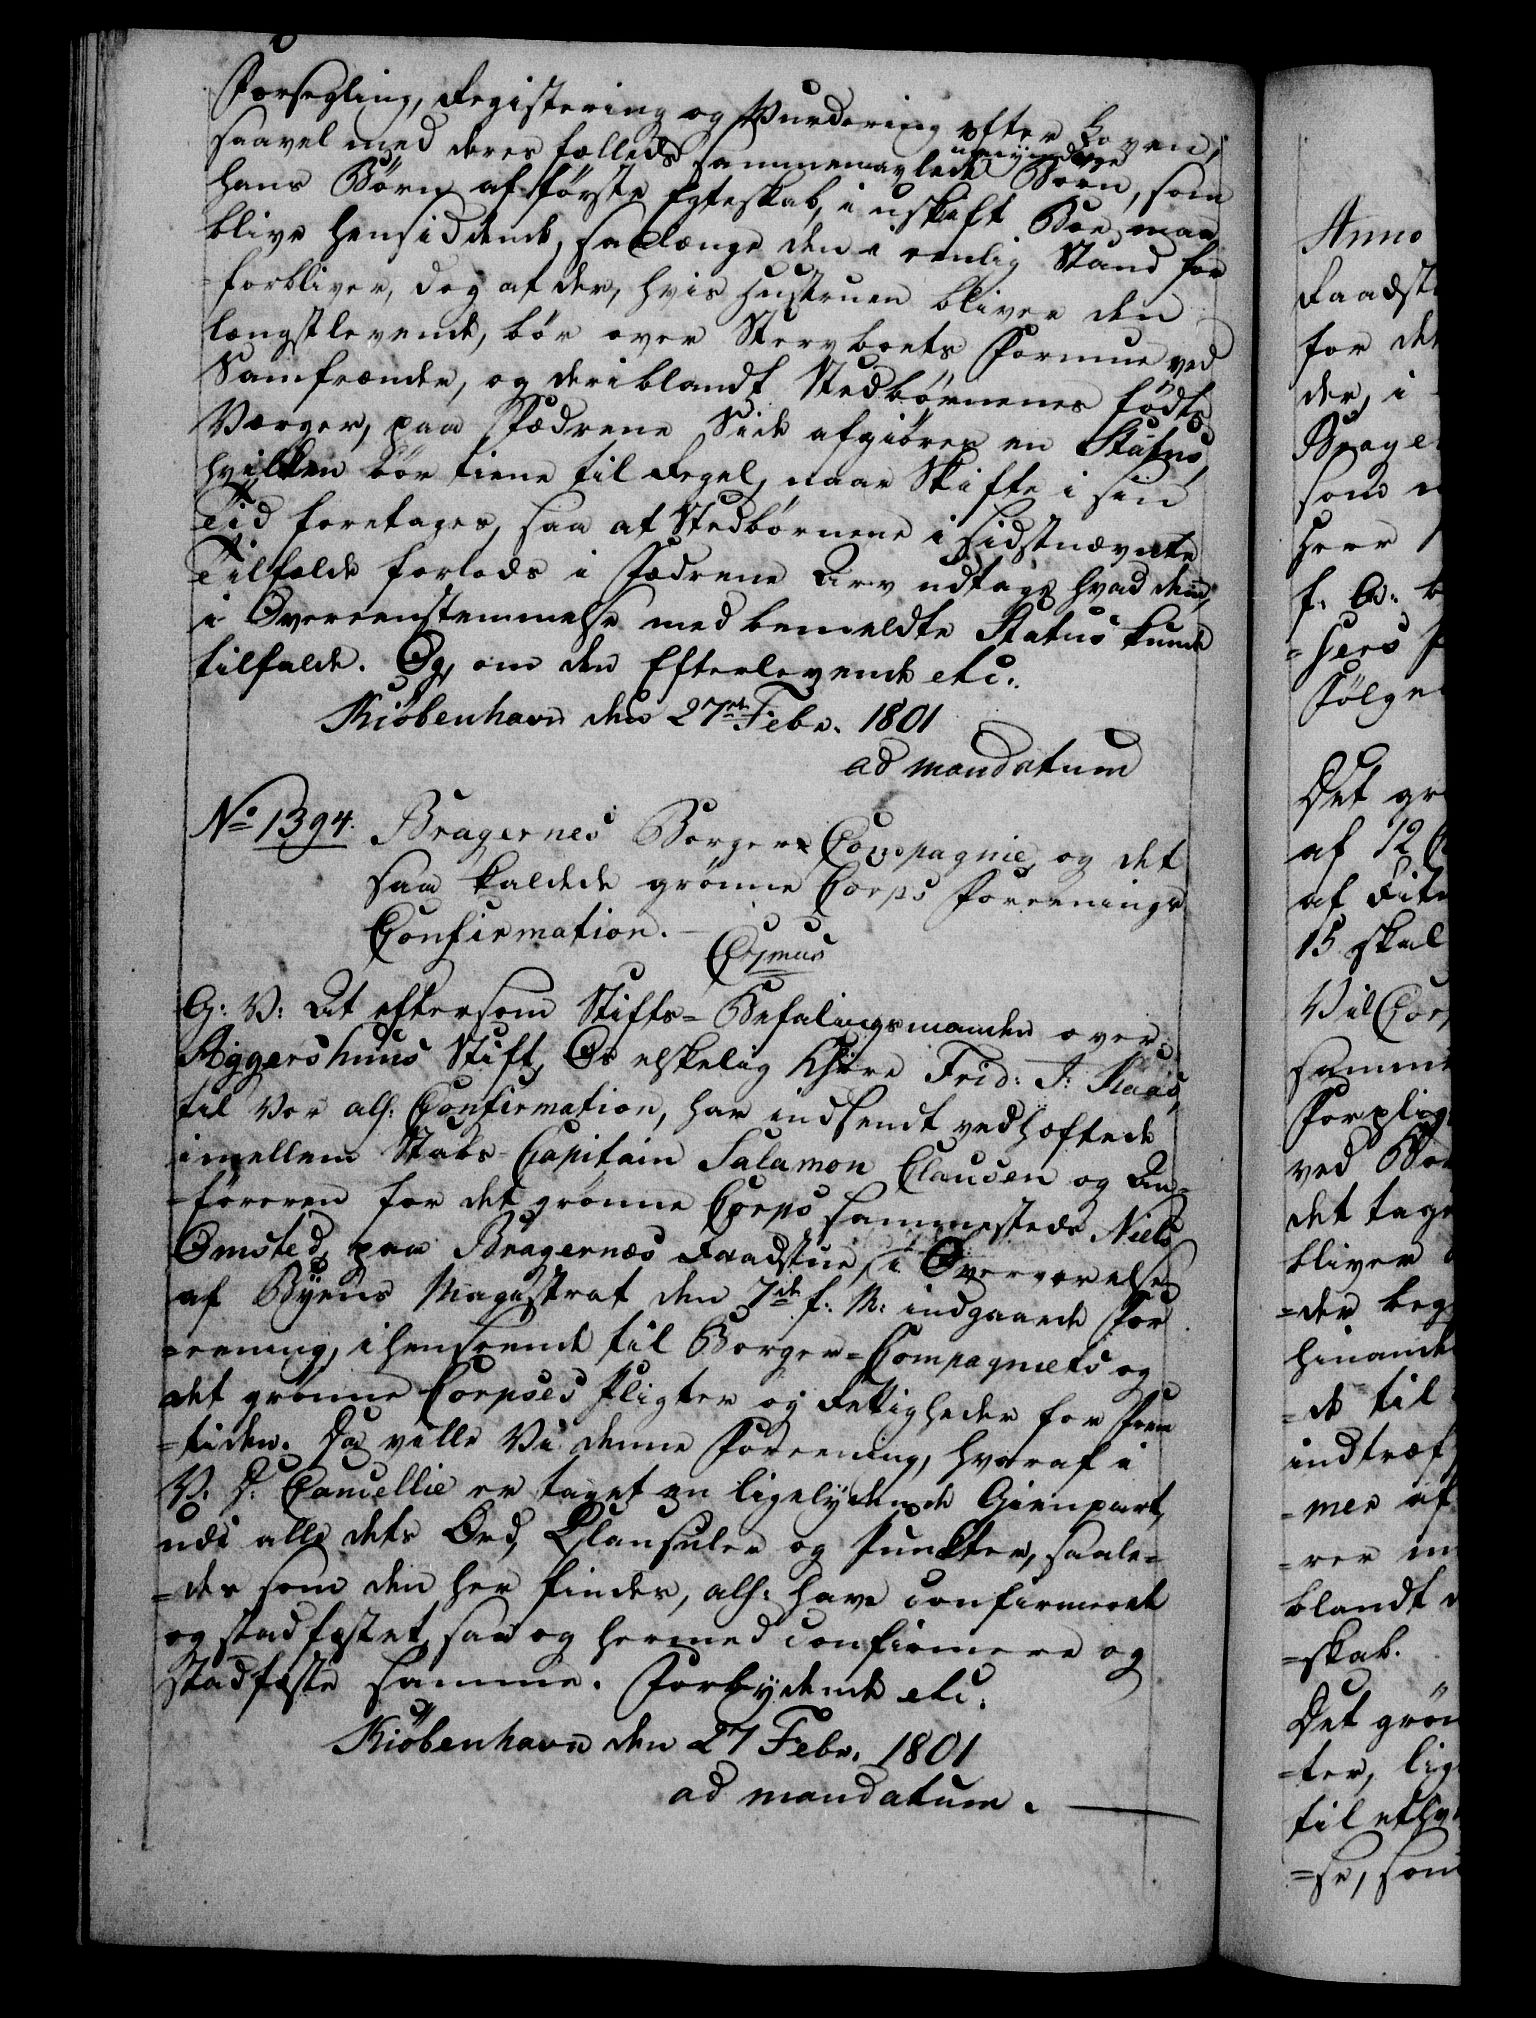 Forsegling, Registering og Vurdering efter Loven,
saavel med deres fælleds sammenavlede umyndige Børn, som
hans Børn af første Egteskab, i uskift Boe maa
blive hensiddende, saalænge den i eenlig Stand for
=forbliver, dog at der, hvis Hustruen bliver den
længstlevende, bør over Stervboets Formue ved
Samfrænder, og deriblandt Stedbørnenes fødte
Værger, paa Fædrene Side afgiøres en Status,
hvilken bør tiene til Regel, naar Skifte i sin
Tid foretages, saa at Stedbørnene i sidstnævnte
Tilfælde forlods i Fædrene Arv udtage hvad dem,
i Overeenstemmelse med bemeldte Status kunde
tilfalde. Og, om den Efterlevende etc.
Kiøbenhavn den 27de Febr. 1801
ad mandatum
No 1394. Bragernes Borger Compagnie og det
saa kaldede grønne Corps Foreenings
Confirmation.
C7mus
G: V: At eftersom Stifts=Befalingsmanden over
Aggershuus Stift, Os elskelig Hr Frid: J: Kaas,
til Vor alh: Confirmation, har indsendt vedhæftede
imellem Stabs-Capitain Salamon Clausen og An=
=føreren for det grønne Corps sammesteds Niels
Omsted, paa Bragernæs Raadstue, i Overværelse
af Byens Magistrat den 7de f: M: indgaaede For
=eening, i henseende til Borger=Compagniets og
det grønne Corpses Pligter og Rettigheder for Frem
=tiden. Da ville Vi denne Foreening, hvoraf i
V. D: Cancellie er taget en ligelydende Gienpart,
udi alle dets Ord, Clausuler og Puncter, saale=
=des som den her findes, alh: have confirmeret
og stadfæstet, saa og hermed confirmere og
stadfæste samme. Forbydende etc.
Kiøbenhavn den 27 Febr. 1801
ad mandatum.
Anno
for det
der, i
som
Herr
Følge
Det gr
af 12
af
15 skal
Vil Cor
samme
Forplig
ved Bo
det tage
bliver
=der beg
hinande
=de til
indtræf
=mer af
=rer
blandt
=skab.
Det grøn
=ter, lig
til ethv
=se, som